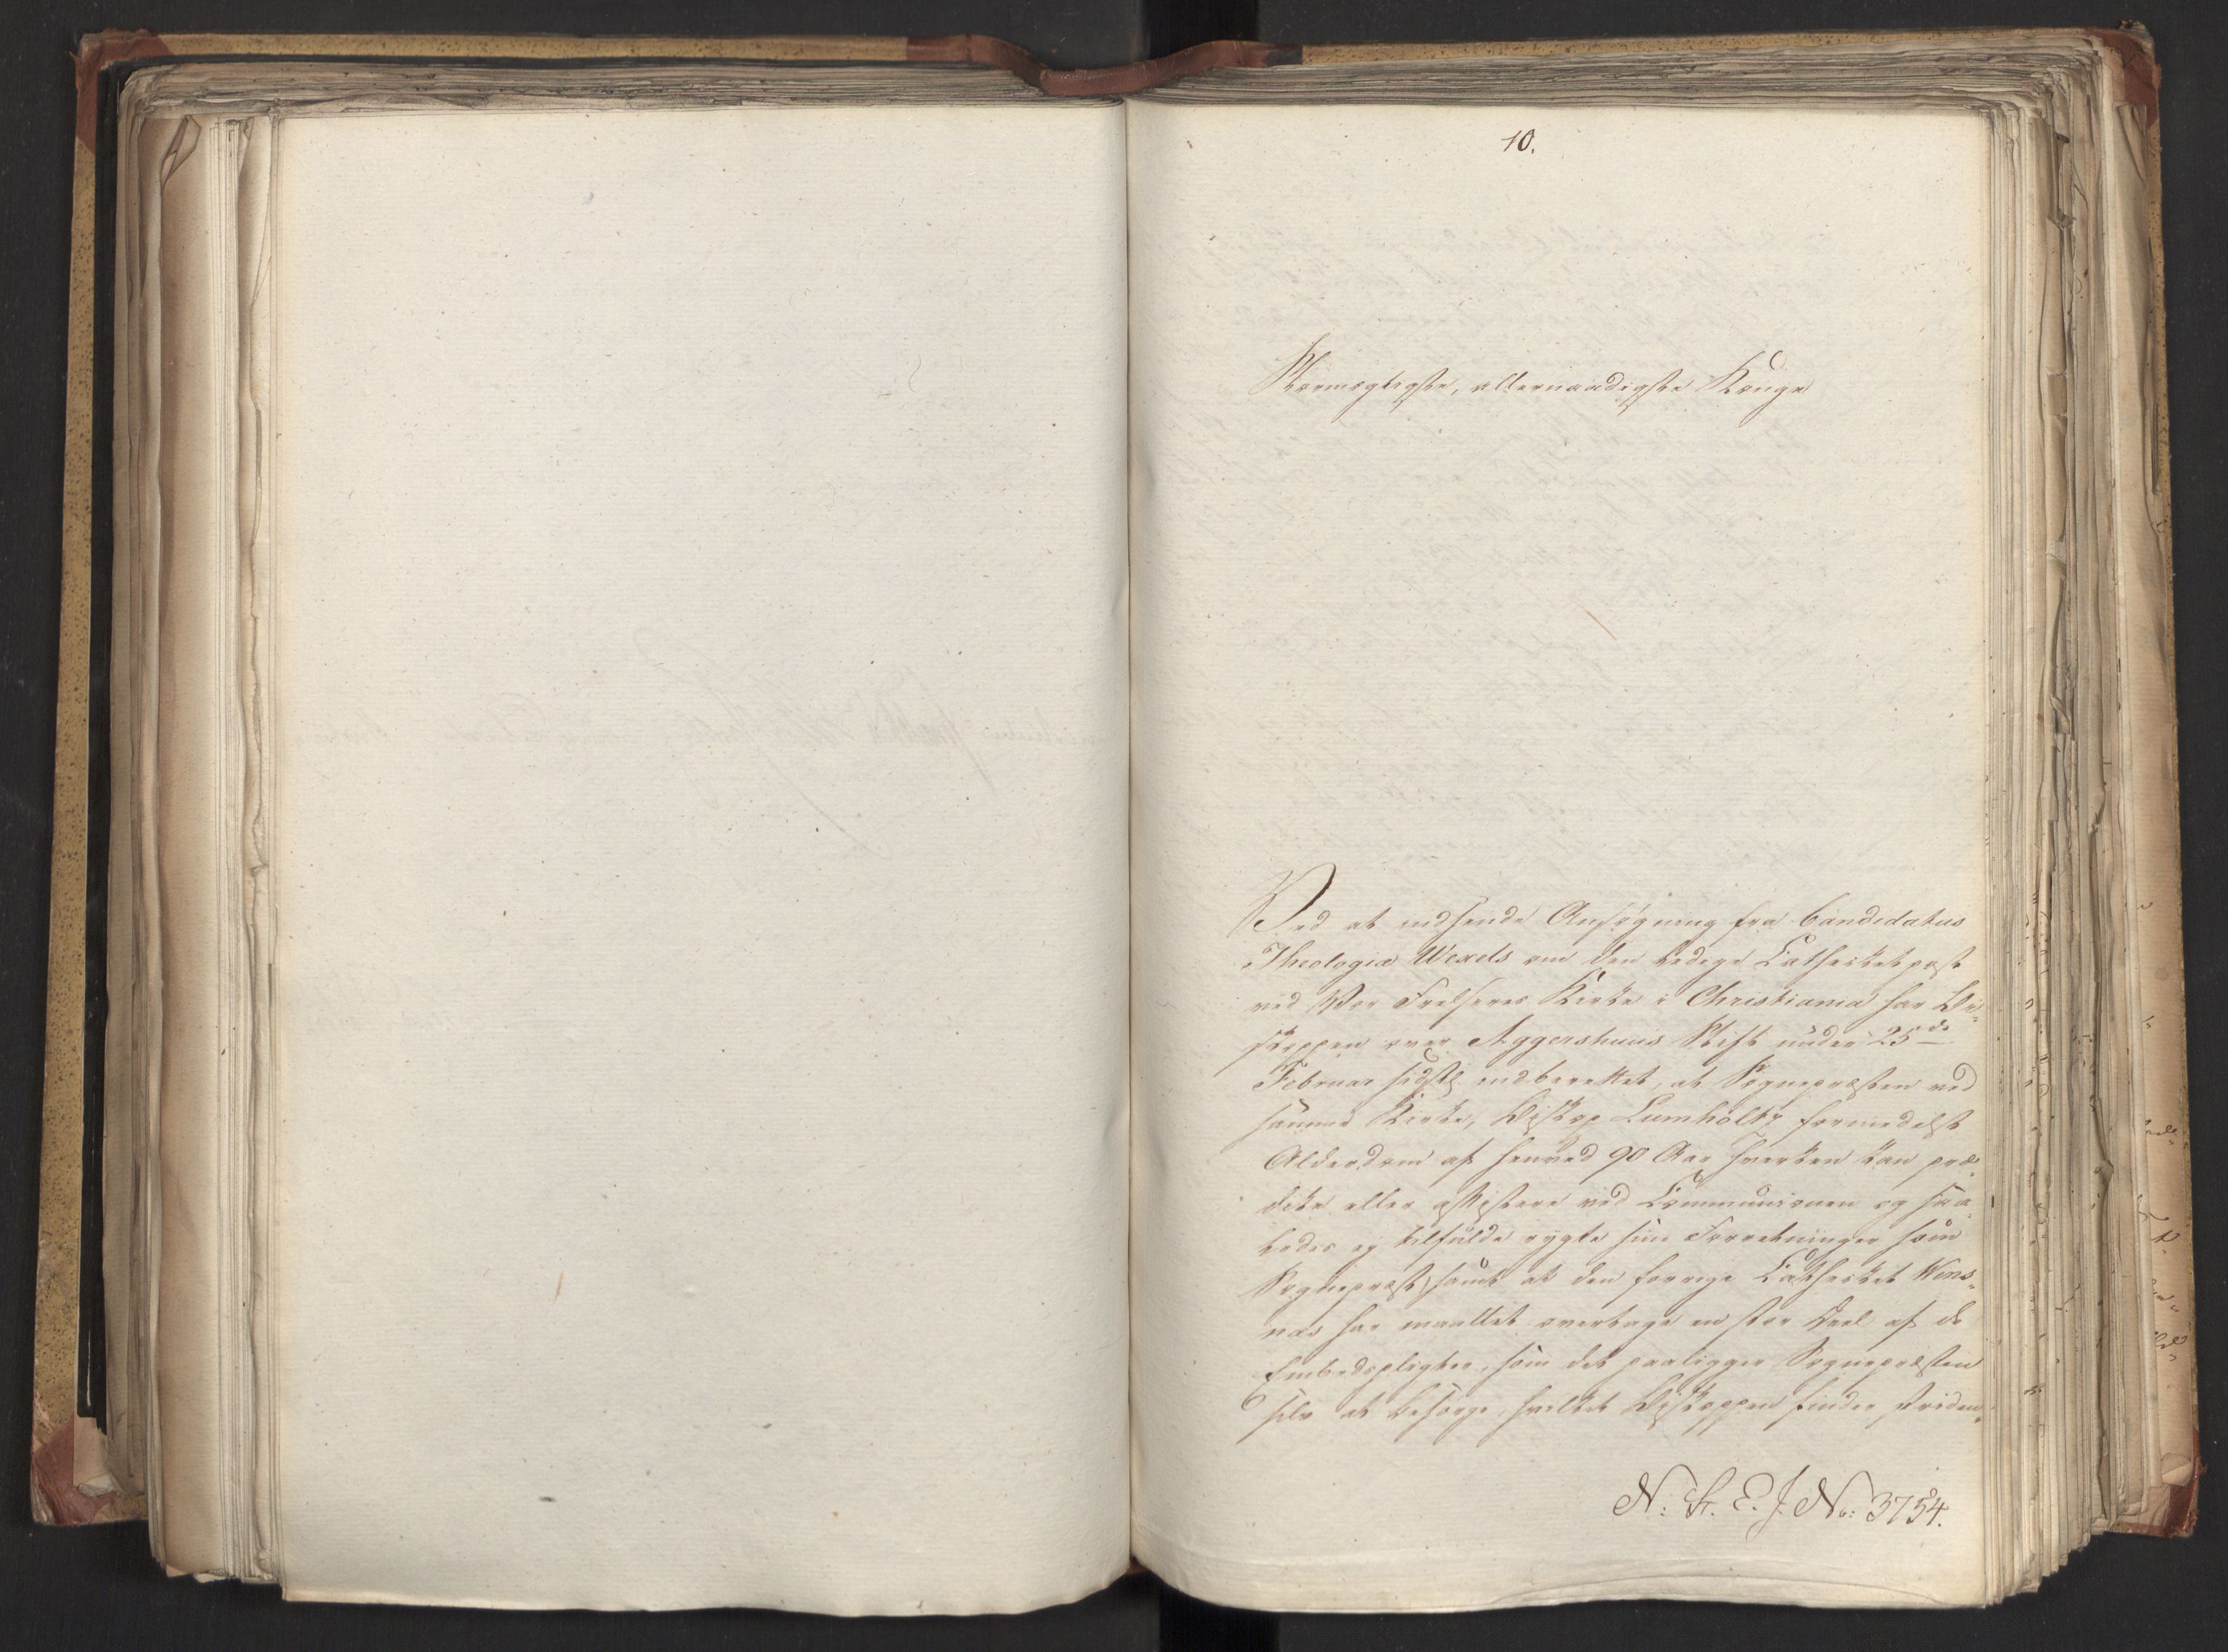 10.
Stormægtigste, allernaadigste Konge
Ved at indsende Ansøgning fra Candidatus
Theologiæ Wexels om den ledige Catheketpost
ved Vor Frelseres Kirke i Christiania har Bi-
skoppen over Aggershuus Stift under 25de
Februar sidstl. indberettet, at Sognepræsten ved
samme Kirke, Biskop Lumholtz formedelst
Alderdom af henved 90 Aar hverken kan præ-
dike eller assistere ved Communionen og saa-
ledes ej tilfulde rygte sine Forretninger som
Sognepræst, samt at den forrige Cathecket Wins-
nes har maattet overtage en stor Deel af de
Embedspligter, som det paaligger Sognepræsten
selv at besørge, hvilket Biskoppen finder striden-
N: St. E. J. No: 3754.